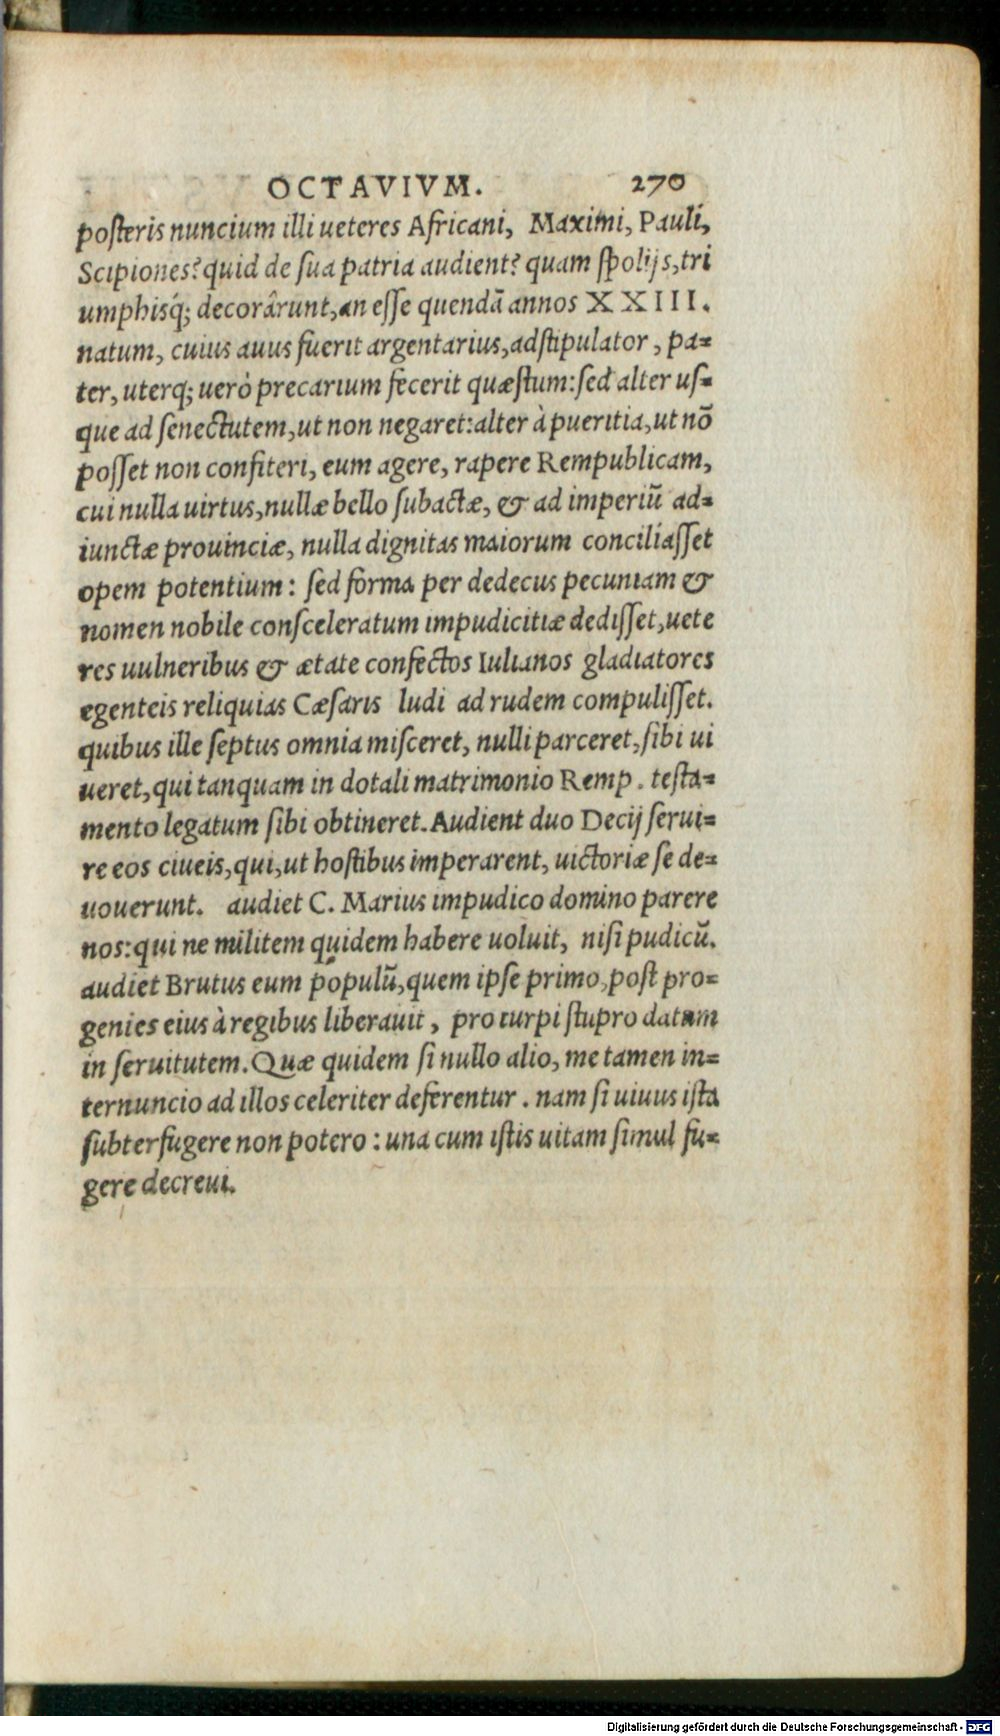 OCTAVIVM. 270
poſteris nuncium illi ueteres Africani, Maximi, Pauli,
Scipiones? quid de ſua patria audient? quam ſpolijs, tri
umphisq́; decorârunt, an eſſe quendã annos XXIII.
natum, cuius auus fuerit argentarius, adſtipulator, pa-
ter, uterq; uerò precarium fecerit quæſtum: ſed alter uſ-
que ad ſenectutem, ut non negaret: alter à pueritia, ut nõ
poſſet non confiteri, eum agere, rapere Rempublicam,
cui nulla uirtus, nullæ bello ſubactæ, & ad imperiũ ad-
iunctæ prouinciæ, nulla dignitas maiorum conciliaſſet
opem potentium: ſed forma per dedecus pecuniam &
nomen nobile conſceleratum impudicitiæ dediſſet, uete
res uulneribus & ætate confectos Iulianos gladiatores
egenteis reliquias Cæſaris ludi ad rudem compuliſſet.
quibus ille ſeptus omnia miſceret, nulli parceret, ſibi ui
ueret, qui tanquam in dotali matrimonio Remp. teſta-
mento legatum ſibi obtineret. Audient duo Decij ſerui-
re eos ciueis, qui, ut hoſtibus imperarent, uictoriæ ſe de-
uouerunt. audiet C. Marius impudico domino parere
nos: qui ne militem quidem habere uoluit, niſi pudicũ.
audiet Brutus eum populũ, quem ipſe primo, poſt pro-
genies eius à regibus liberauit, pro turpi ſtupro datum
in ſeruitutem. Quæ quidem ſi nullo alio, me tamen in-
ternuncio ad illos celeriter deferentur. nam ſi uiuus iſta
ſubterfugere non potero: una cum iſtis uitam ſimul fu-
gere decreui.
Digitalisierung gefördert durch die Deutsche Forschungsgemeinschaft - DFG